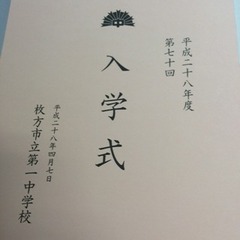 平成二十八年度
第七十回
入学式
平成二十八年四月七日
枚方市立第一中学校